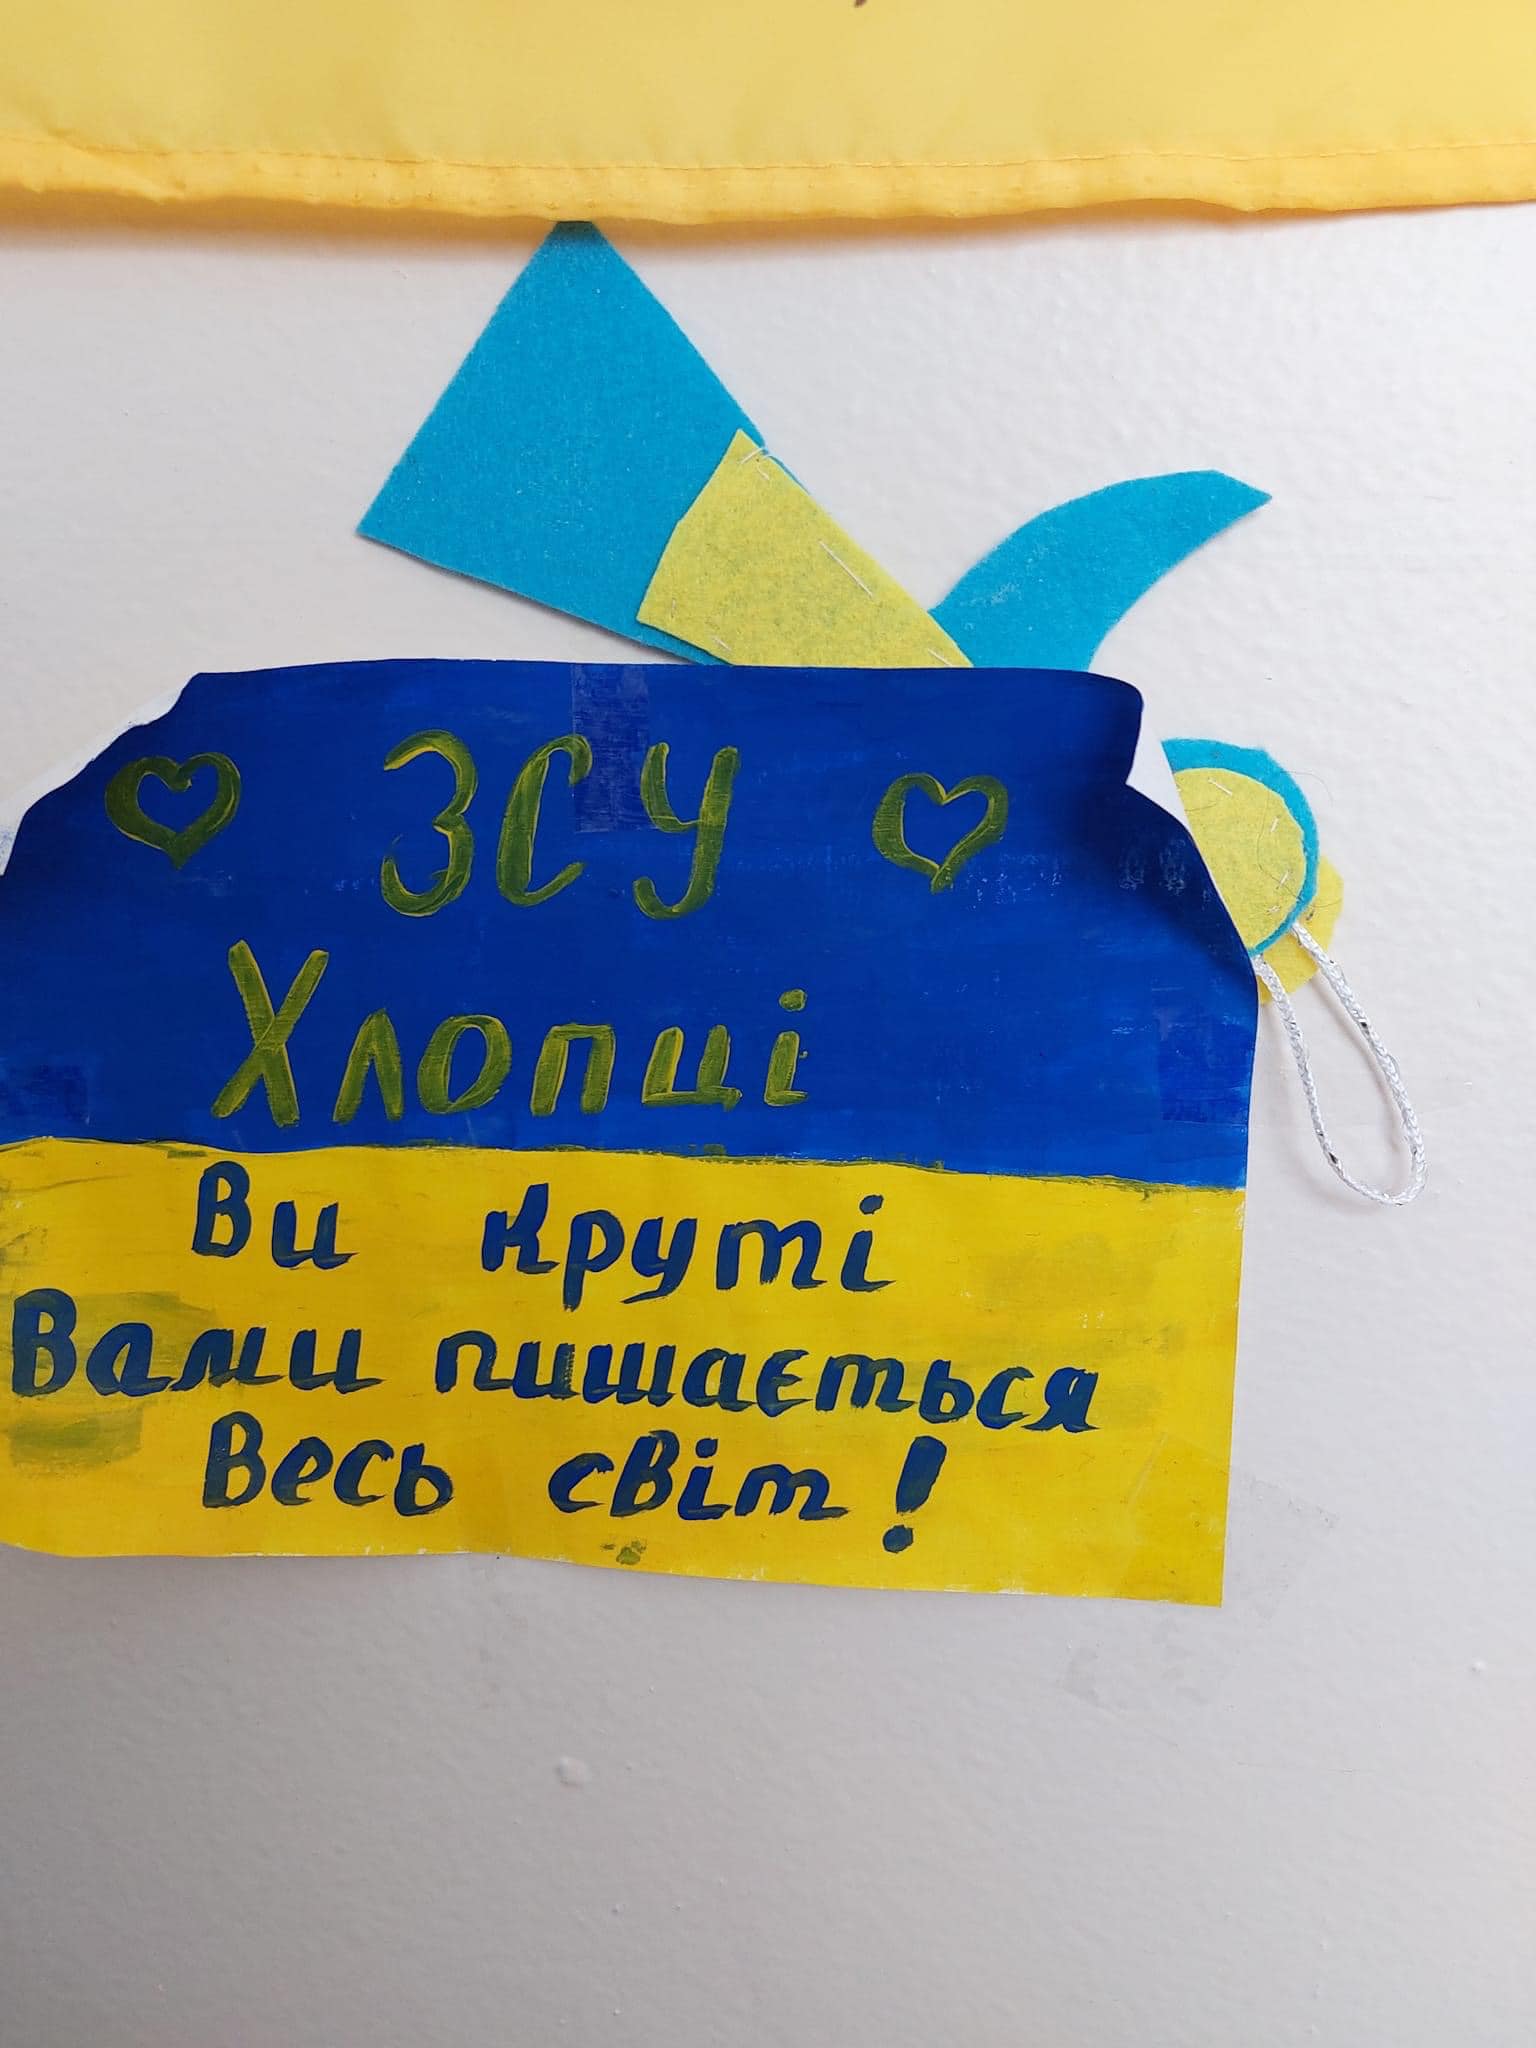 ЗСУ
Хлопці
Ви круті
Вами пишається
Весь світ!